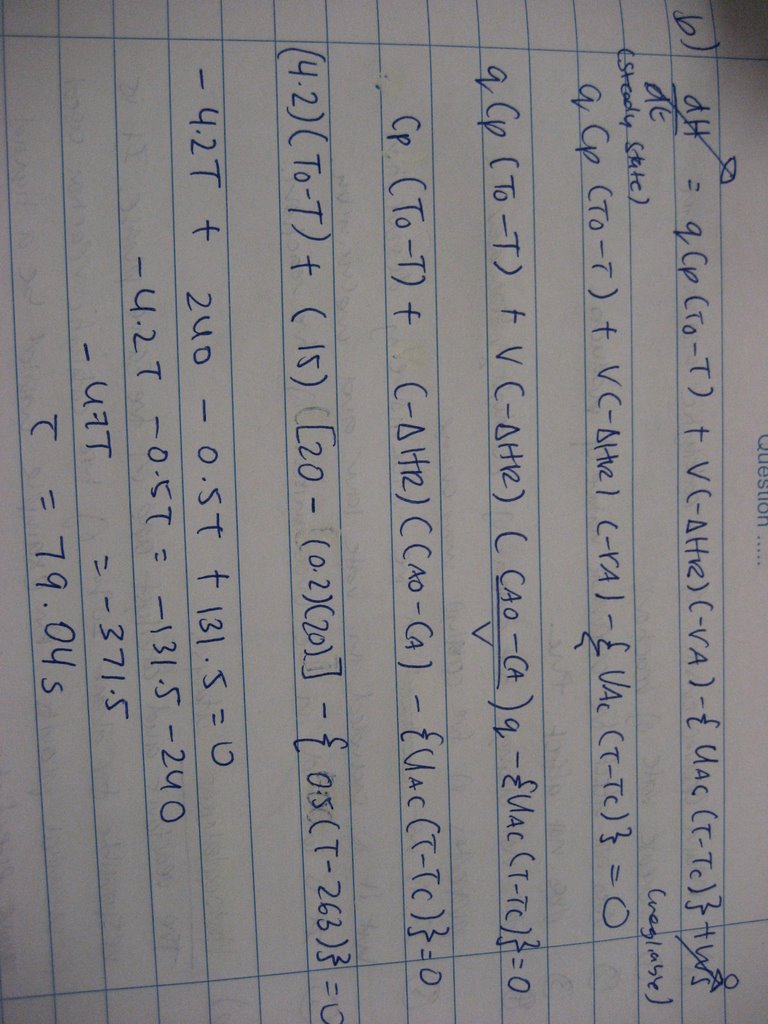 Question .....
b) dH/dt = qCp(To-T) + V(-ΔHR)(-rA) - {UAc(T-Tc)} + Ws
(steady state) (negligible)
qCp(To-T) + V(-ΔHR)(-rA) - {UAc(T-Tc)} = 0
qCp(To-T) + V(-ΔHR)(CAO-CA/V)q - {UAc(T-Tc)} = 0
∴ Cp(To-T) + (-ΔHR)(CAO-CA) - {UAc(T-Tc)} = 0
(4.2)(To-T) + (15)([20-(0.2)(20)] - {0.5(T-263)} = 0
-4.2T + 240 - 0.5T + 131.5 = 0
-4.2T - 0.5T = -131.5 - 240
-4.7T = -371.5
T = 79.04s